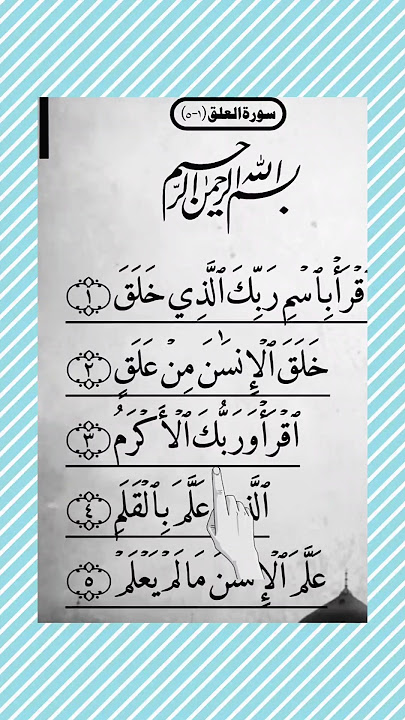 سورة العلق (١-٥)
بسم الله الرحمن الرحيم
قْرَأْ بِٱسْمِ رَبِّكَ ٱلَّذِي خَلَقَ ١
خَلَقَ ٱلْإِنسَٰنَ مِنْ عَلَقٍ ٢
ٱقْرَأْ وَرَبُّكَ ٱلْأَكْرَمُ ٣
عَلَّمَ بِٱلْقَلَمِ ٤
عَلَّمَ ٱلْإِنسَٰنَ مَا لَمْ يَعْلَمْ ٥